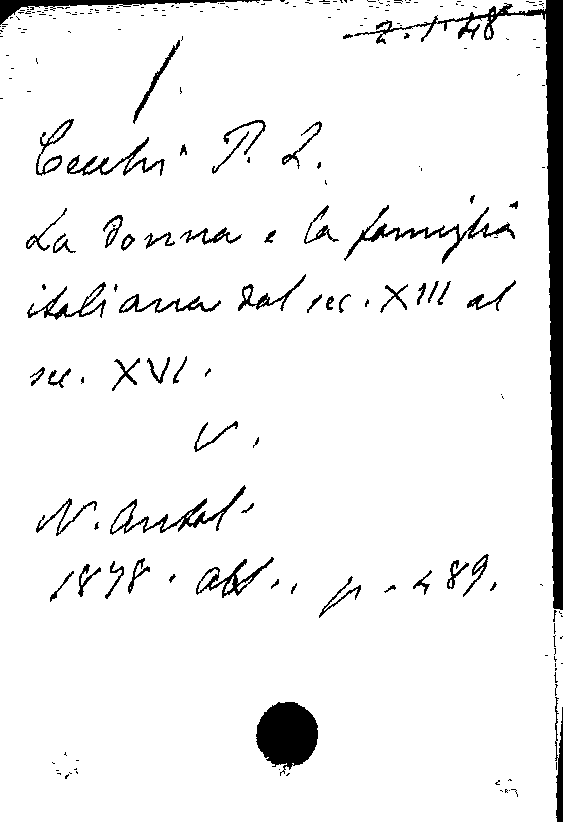 2.1.48
Cecchi P. L.
La donna e la famiglia
italiana dal sec. XIII al
sec. XVI.
V.
N. Antol.
1878. ott., p. 489.